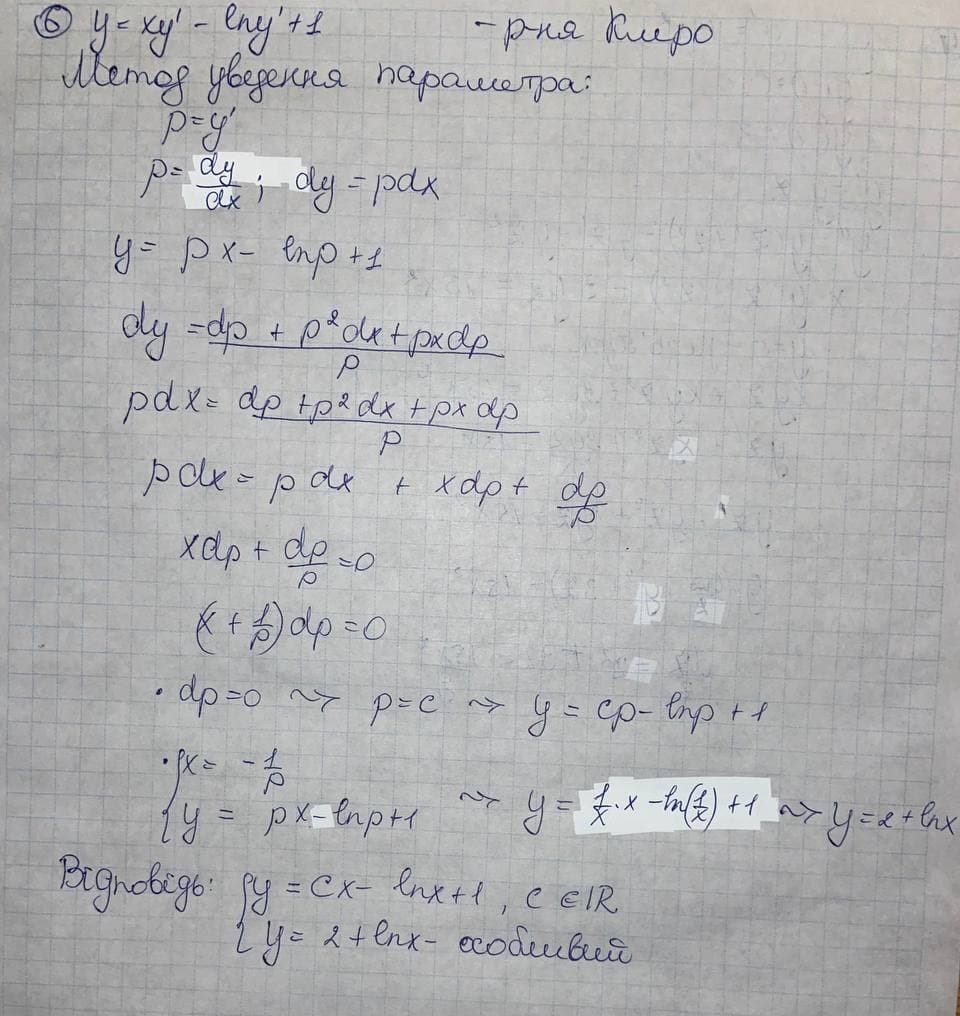 ⑥ y = xy' - lny' + 1 - р-ня Клеро
Метод уведення параметра:
p = y'
p = dy/dx ; dy = pdx
y = px - lnp + 1
dy = (dp + p²dx + pxdp)/p
pdx = (dp + p²dx + pxdp)/p
pdx = pdx + xdp + dp/p
xdp + dp/p = 0
(x + 1/p)dp = 0
• dp = 0 ⇝ p = c ⇝ y = cp - lnp + 1
• { x = -1/p
{ y = px - lnp + 1 ⇝ y = 1/x · x - ln(1/x) + 1 ⇝ y = 2 + lnx
Відповідь: { y = Cx - lnx + 1, C ∈ ℝ
{ y = 2 + lnx - особливий